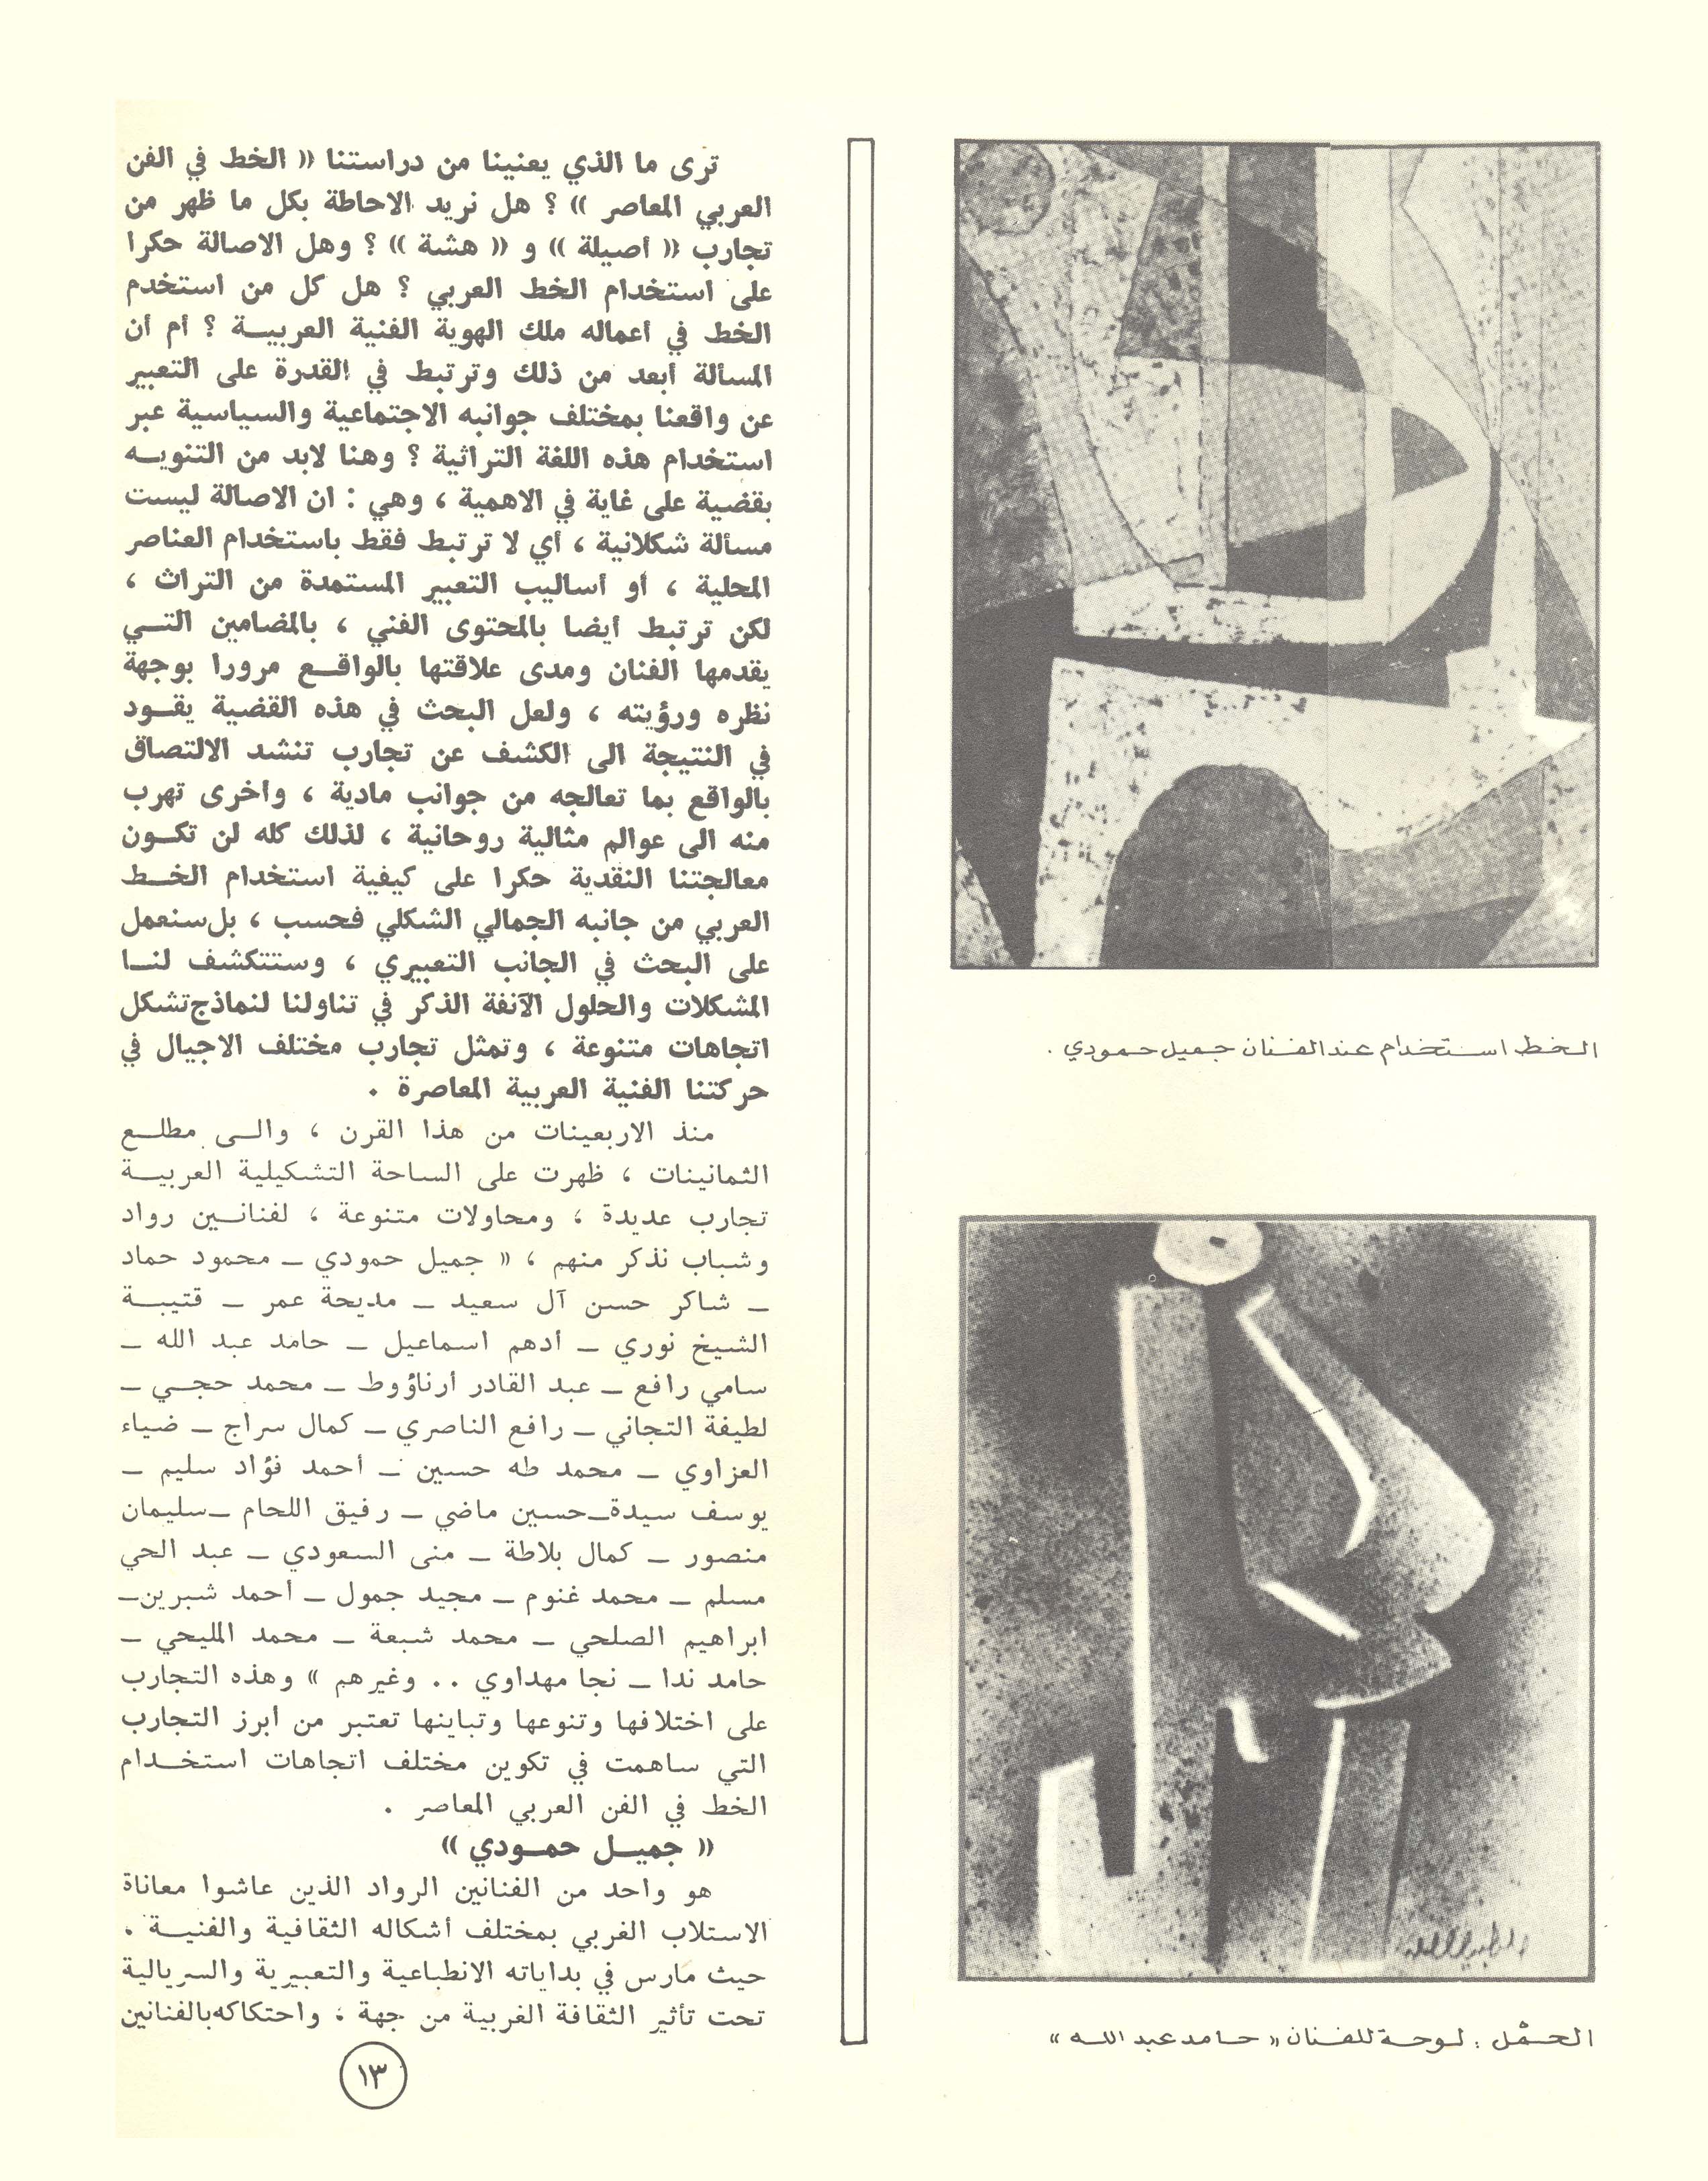 الخط استخدام عند الفنان جميل حمودي .
الحمْل : لوحة للفنان « حامد عبد الله »
ترى ما الذي يعنينا من دراستنا « الخط في الفن
العربي المعاصر » ؟ هل نريد الاحاطة بكل ما ظهر من
تجارب « أصيلة » و « هشة » ؟ وهل الاصالة حكرا
على استخدام الخط العربي ؟ هل كل من استخدم
الخط في أعماله ملك الهوية الفنية العربيــة ؟ أم أن
المسألة أبعد من ذلك وترتبط في القدرة على التعبير
عن واقعنا بمختلف جوانبه الاجتماعية والسياسية عبر
استخدام هذه اللغة التراثية ؟ وهنا لابد من التنويــه
بقضية على غاية في الاهمية ، وهي : ان الاصالة ليست
مسألة شكلانية ، أي لا ترتبط فقط باستخدام العناصر
المحلية ، أو أساليب التعبير المستمدة من التراث ،
لكن ترتبط أيضا بالمحتوى الفني ، بالمضامين التــي
يقدمها الفنان ومدى علاقتها بالواقــع مرورا بوجهة
نظره ورؤيته ، ولعل البحث في هذه القضية يقــود
في النتيجة الى الكشف عن تجارب تنشد الالتصاق
بالواقع بما تعالجه من جوانب مادية ، وأخرى تهرب
منه الى عوالم مثالية روحانية ، لذلك كله لن تكــون
معالجتنا النقدية حكرا على كيفية استخدام الخــط
العربي من جانبه الجمالي الشكلي فحسب ، بل سنعمل
على البحث في الجانب التعبيري ، وستتكشف لنــا
المشكلات والحلول الآنفة الذكر في تناولنا لنماذج تشكل
اتجاهات متنوعة ، وتمثل تجارب مختلف الاجيال في
حركتنا الفنية العربية المعاصرة .
منذ الاربعينات من هذا القرن ، والــى مطلــع
الثمانينات ، ظهرت على الساحة التشكيلية العربيــة
تجارب عديدة ، ومحاولات متنوعة ، لفنانــين رواد
وشباب نذكر منهم ، « جميل حمودي ــ محمود حماد
ــ شاكر حسن آل سعيد ــ مديحة عمر ــ قتيبــة
الشيخ نوري ــ أدهم اسماعيل ــ حامد عبد الله ــ
سامي رافع ــ عبد القادر أرناؤوط ــ محمد حجــي ــ
لطيفة التجاني ــ رافع الناصري ــ كمال سراج ــ ضياء
العزاوي ــ محمد طه حسين ــ أحمد فؤاد سليم ــ
يوسف سيدة ــ حسين ماضي ــ رفيق اللحام ــ سليمان
منصور ــ كمال بلاطة ــ منى السعودي ــ عبد الحي
مسلم ــ محمد غنوم ــ مجيد جمول ــ أحمد شبرين ــ
ابراهيم الصلحي ــ محمد شبعة ــ محمد المليحي ــ
حامد ندا ــ نجا مهداوي .. وغيرهم » وهذه التجارب
على اختلافها وتنوعها وتباينها تعتبر من ابرز التجارب
التي ساهمت في تكوين مختلف اتجاهات استخــدام
الخط في الفن العربي المعاصر .
« جميــل حمــودي »
هو واحد من الفنانين الرواد الذين عاشوا معاناة
الاستلاب الغربي بمختلف أشكاله الثقافية والفنيــة .
حيث مارس في بداياته الانطباعية والتعبيرية والسريالية
تحت تأثير الثقافة الغربية من جهة ، واحتكاكه بالفنانين
١٣